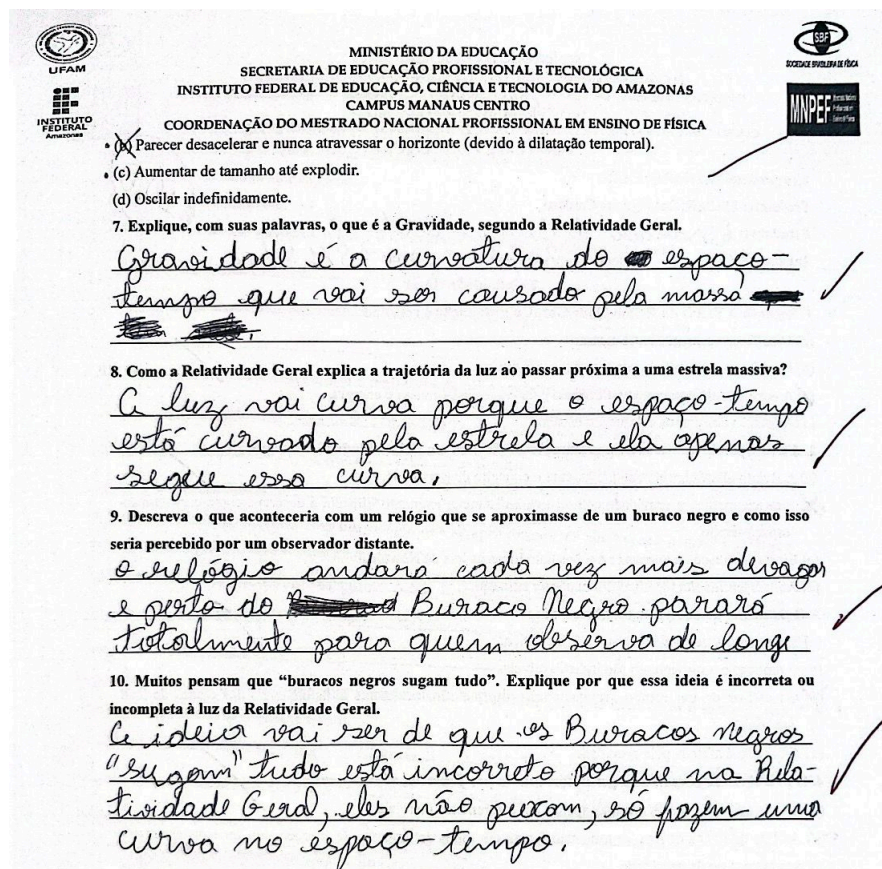 UFAM
INSTITUTO
FEDERAL
Amazonas
SBF
SOCIEDADE BRASILEIRA DE FÍSICA
MNPEF
MINISTÉRIO DA EDUCAÇÃO
SECRETARIA DE EDUCAÇÃO PROFISSIONAL E TECNOLÓGICA
INSTITUTO FEDERAL DE EDUCAÇÃO, CIÊNCIA E TECNOLOGIA DO AMAZONAS
CAMPUS MANAUS CENTRO
COORDENAÇÃO DO MESTRADO NACIONAL PROFISSIONAL EM ENSINO DE FÍSICA
(b) Parecer desacelerar e nunca atravessar o horizonte (devido à dilatação temporal).
(c) Aumentar de tamanho até explodir.
(d) Oscilar indefinidamente.
7. Explique, com suas palavras, o que é a Gravidade, segundo a Relatividade Geral.
Gravidade é a curvatura do espaço-
tempo que vai ser causado pela massa
8. Como a Relatividade Geral explica a trajetória da luz ao passar próxima a uma estrela massiva?
A luz vai curva porque o espaço-tempo
está curvado pela estrela e ela apenas
segue essa curva.
9. Descreva o que aconteceria com um relógio que se aproximasse de um buraco negro e como isso
seria percebido por um observador distante.
o relógio andará cada vez mais devagar
e perto do Buraco Negro parará
totalmente para quem observa de longe
10. Muitos pensam que “buracos negros sugam tudo”. Explique por que essa ideia é incorreta ou
incompleta à luz da Relatividade Geral.
A ideia vai ser de que os Buracos negros
"sugam" tudo está incorreto porque na Rela-
tividade Geral, eles não puxam, só fazem uma
curva no espaço-tempo.